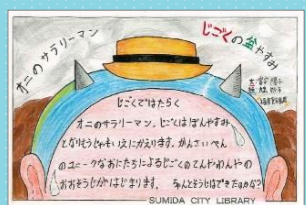 オニのサラリーマン
じごくの盆やすみ
じごくではたらく
オニのサラリーマン。じごくはぼんやすみ
となりうちゃもいえにかえります。かんさいべん
のユニークなおにたちによるじごくのてんやわんやの
おおそうじがはじまります。ちゃんとそうじはできたのかな？
SUMIDA CITY LIBRARY